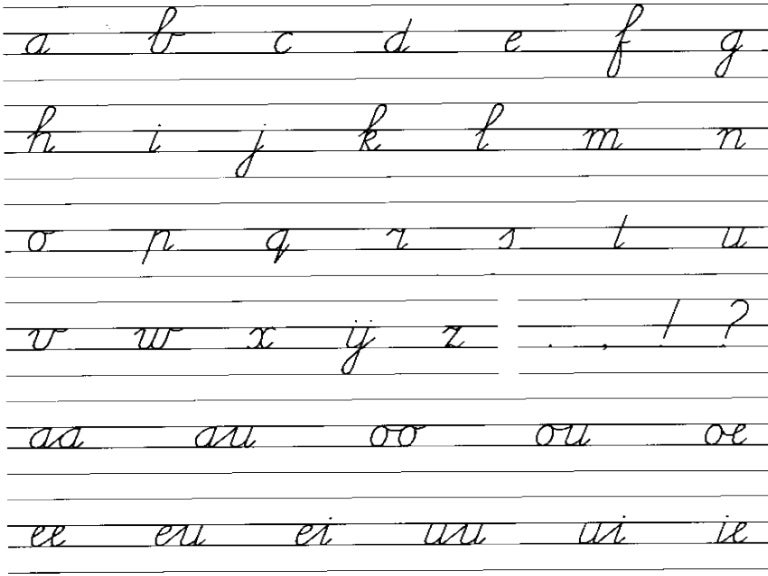 a b c d e f g
h i j k l m n
o p q r s t u
v w x ÿ z . , ! ?
aa au oo ou oe
ee eu ei uu ui ie